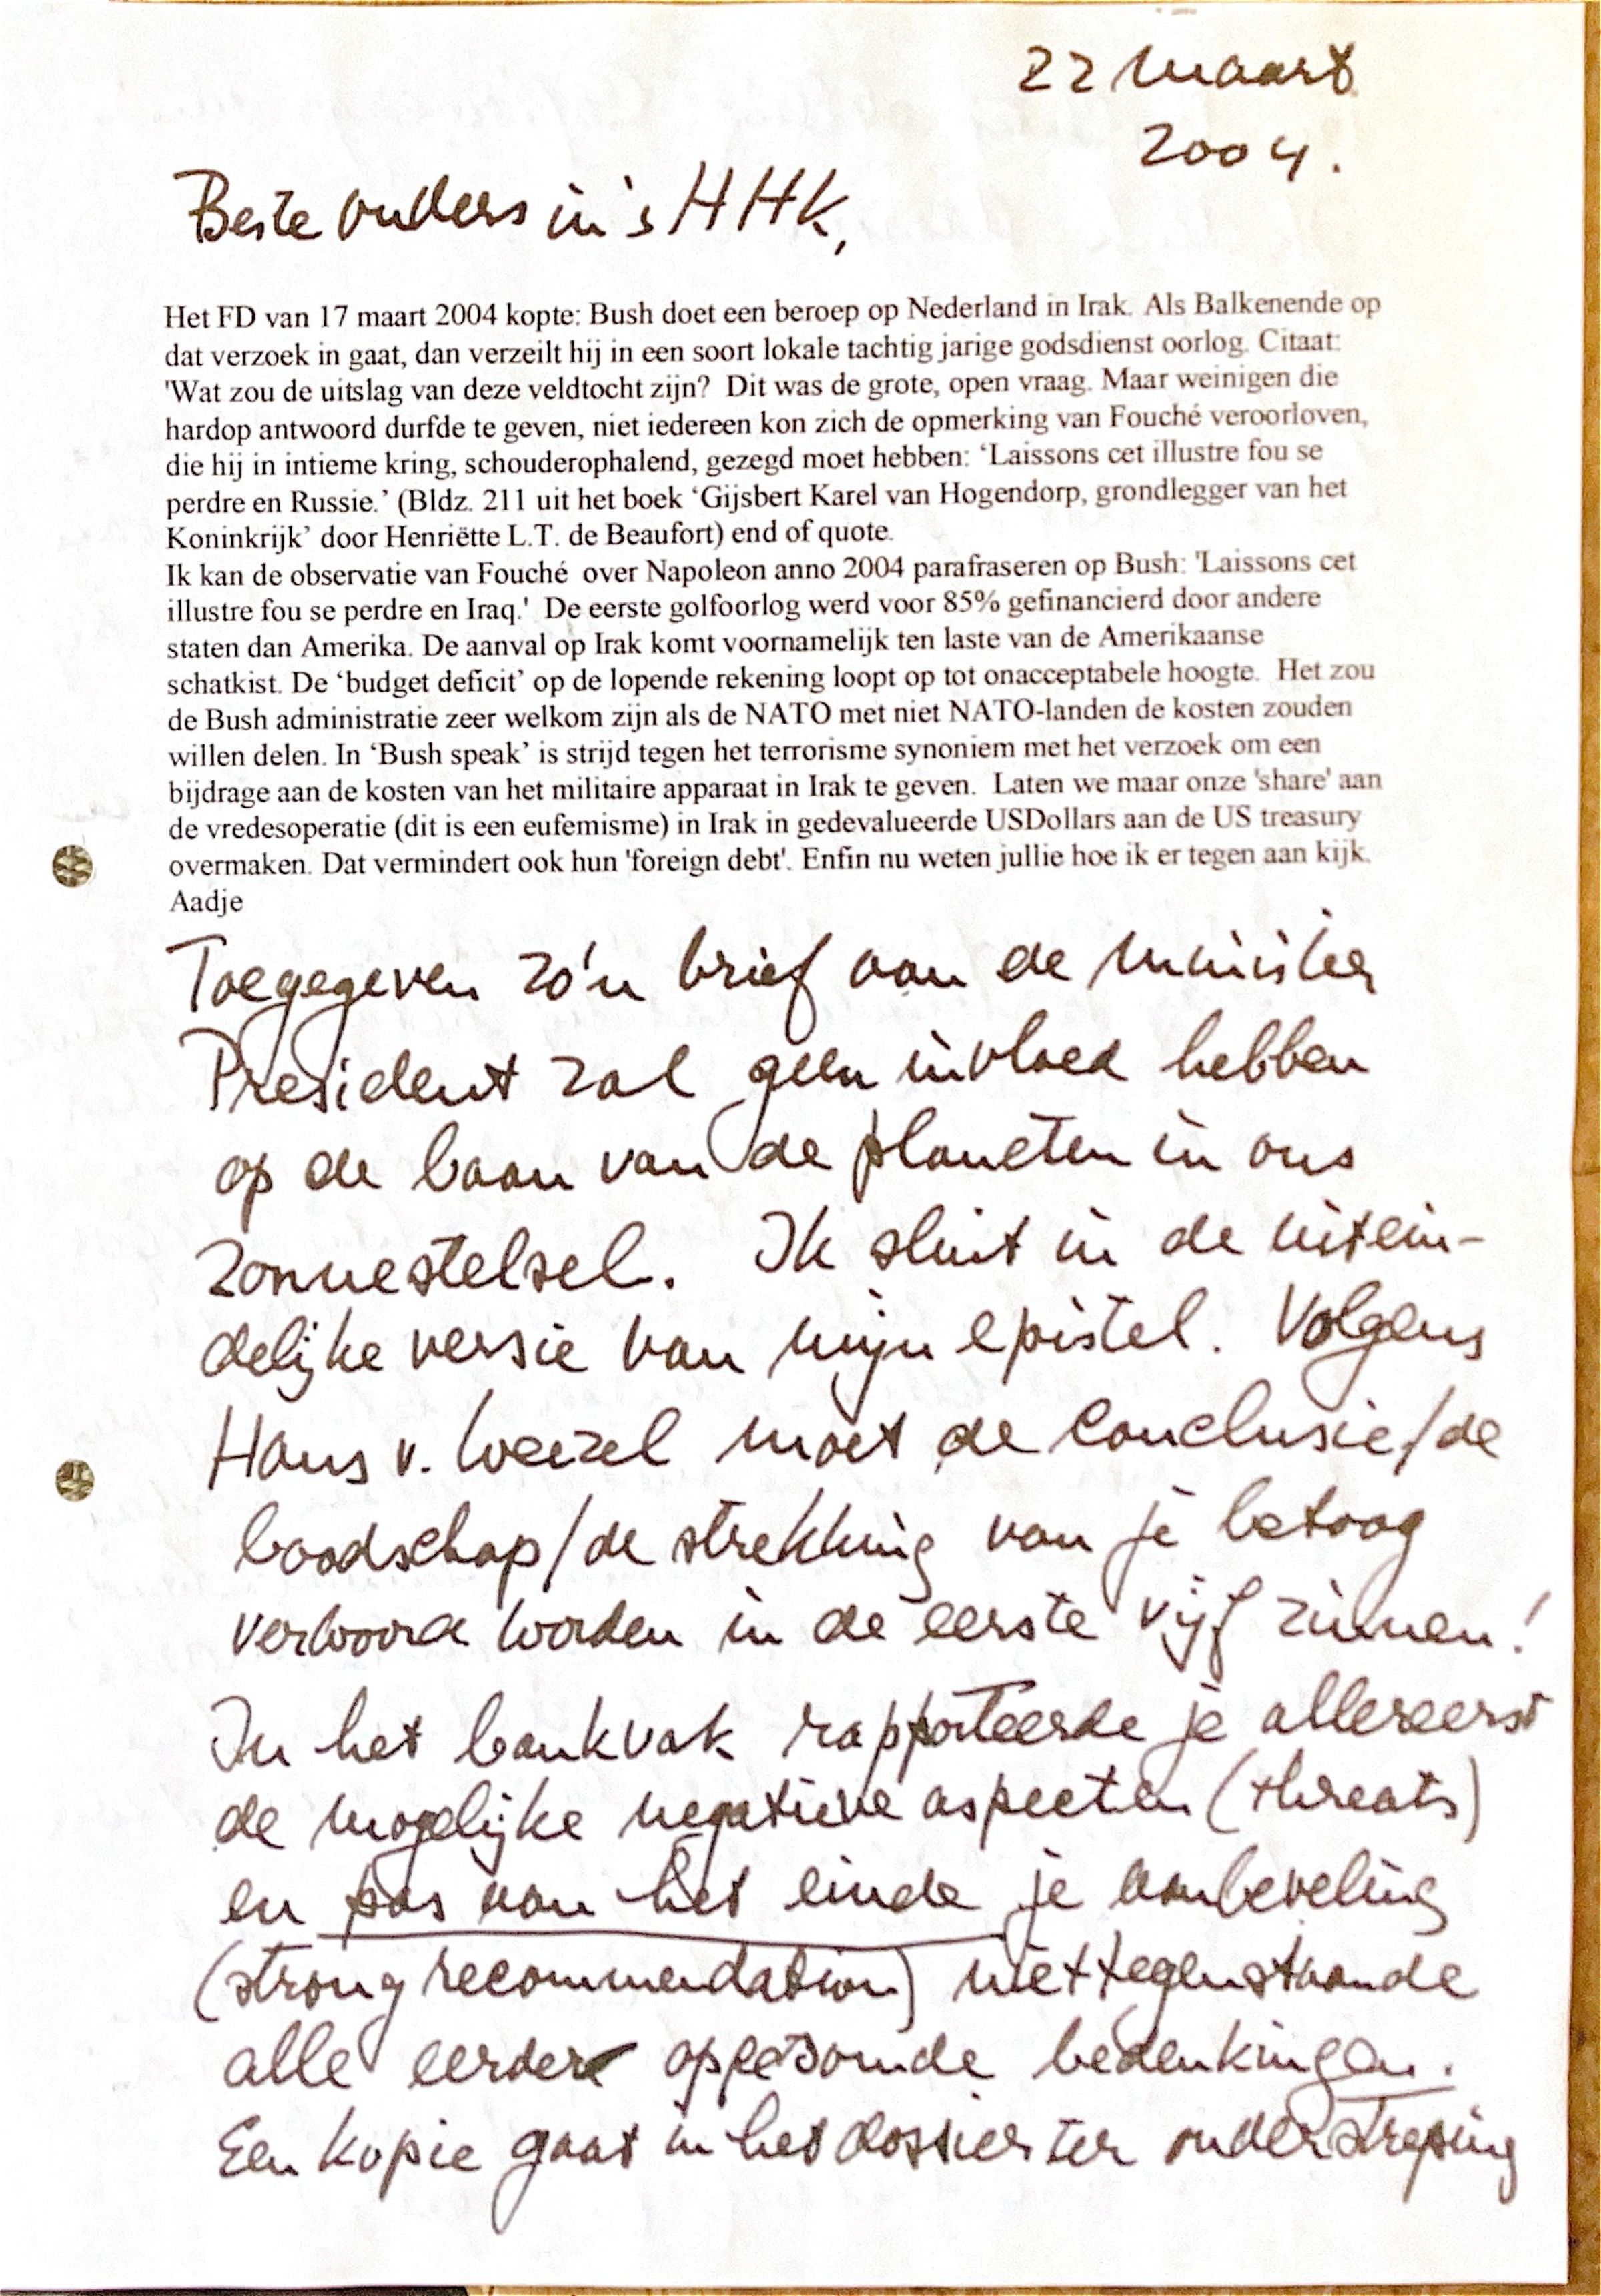 22 maart
2004.
Beste ouders in 's HHK,
Het FD van 17 maart 2004 kopte: Bush doet een beroep op Nederland in Irak. Als Balkenende op
dat verzoek in gaat, dan verzeilt hij in een soort lokale tachtig jarige godsdienst oorlog. Citaat:
'Wat zou de uitslag van deze veldtocht zijn?  Dit was de grote, open vraag. Maar weinigen die
hardop antwoord durfde te geven, niet iedereen kon zich de opmerking van Fouché veroorloven,
die hij in intieme kring, schouderophalend, gezegd moet hebben: ‘Laissons cet illustre fou se
perdre en Russie.’ (Bldz. 211 uit het boek ‘Gijsbert Karel van Hogendorp, grondlegger van het
Koninkrijk’ door Henriëtte L.T. de Beaufort) end of quote.
Ik kan de observatie van Fouché  over Napoleon anno 2004 parafraseren op Bush: 'Laissons cet
illustre fou se perdre en Iraq.'  De eerste golfoorlog werd voor 85% gefinancierd door andere
staten dan Amerika. De aanval op Irak komt voornamelijk ten laste van de Amerikaanse
schatkist. De ‘budget deficit’ op de lopende rekening loopt op tot onacceptabele hoogte.  Het zou
de Bush administratie zeer welkom zijn als de NATO met niet NATO-landen de kosten zouden
willen delen. In ‘Bush speak’ is strijd tegen het terrorisme synoniem met het verzoek om een
bijdrage aan de kosten van het militaire apparaat in Irak te geven.  Laten we maar onze 'share' aan
de vredesoperatie (dit is een eufemisme) in Irak in gedevalueerde USDollars aan de US treasury
overmaken. Dat vermindert ook hun 'foreign debt'. Enfin nu weten jullie hoe ik er tegen aan kijk.
Aadje
Toegegeven zo'n brief aan de minister
President zal geen invloed hebben
op de baan van de planeten in ons
zonnestelsel. Ik sluit in de uitein-
delijke versie van mijn epistel. Volgens
Hans v. Weezel moet de conclusie/de
boodschap/de strekking van je betoog
verwoord worden in de eerste vijf zinnen!
In het bankvak rapporteerde je allereerst
de mogelijke negatieve aspecten (threats)
en pas aan het einde je aanbeveling
(strong recommendation) niettegenstaande
alle eerder opgesomde bedenkingen.
Een kopie gaat in het dossier ter onderstreping